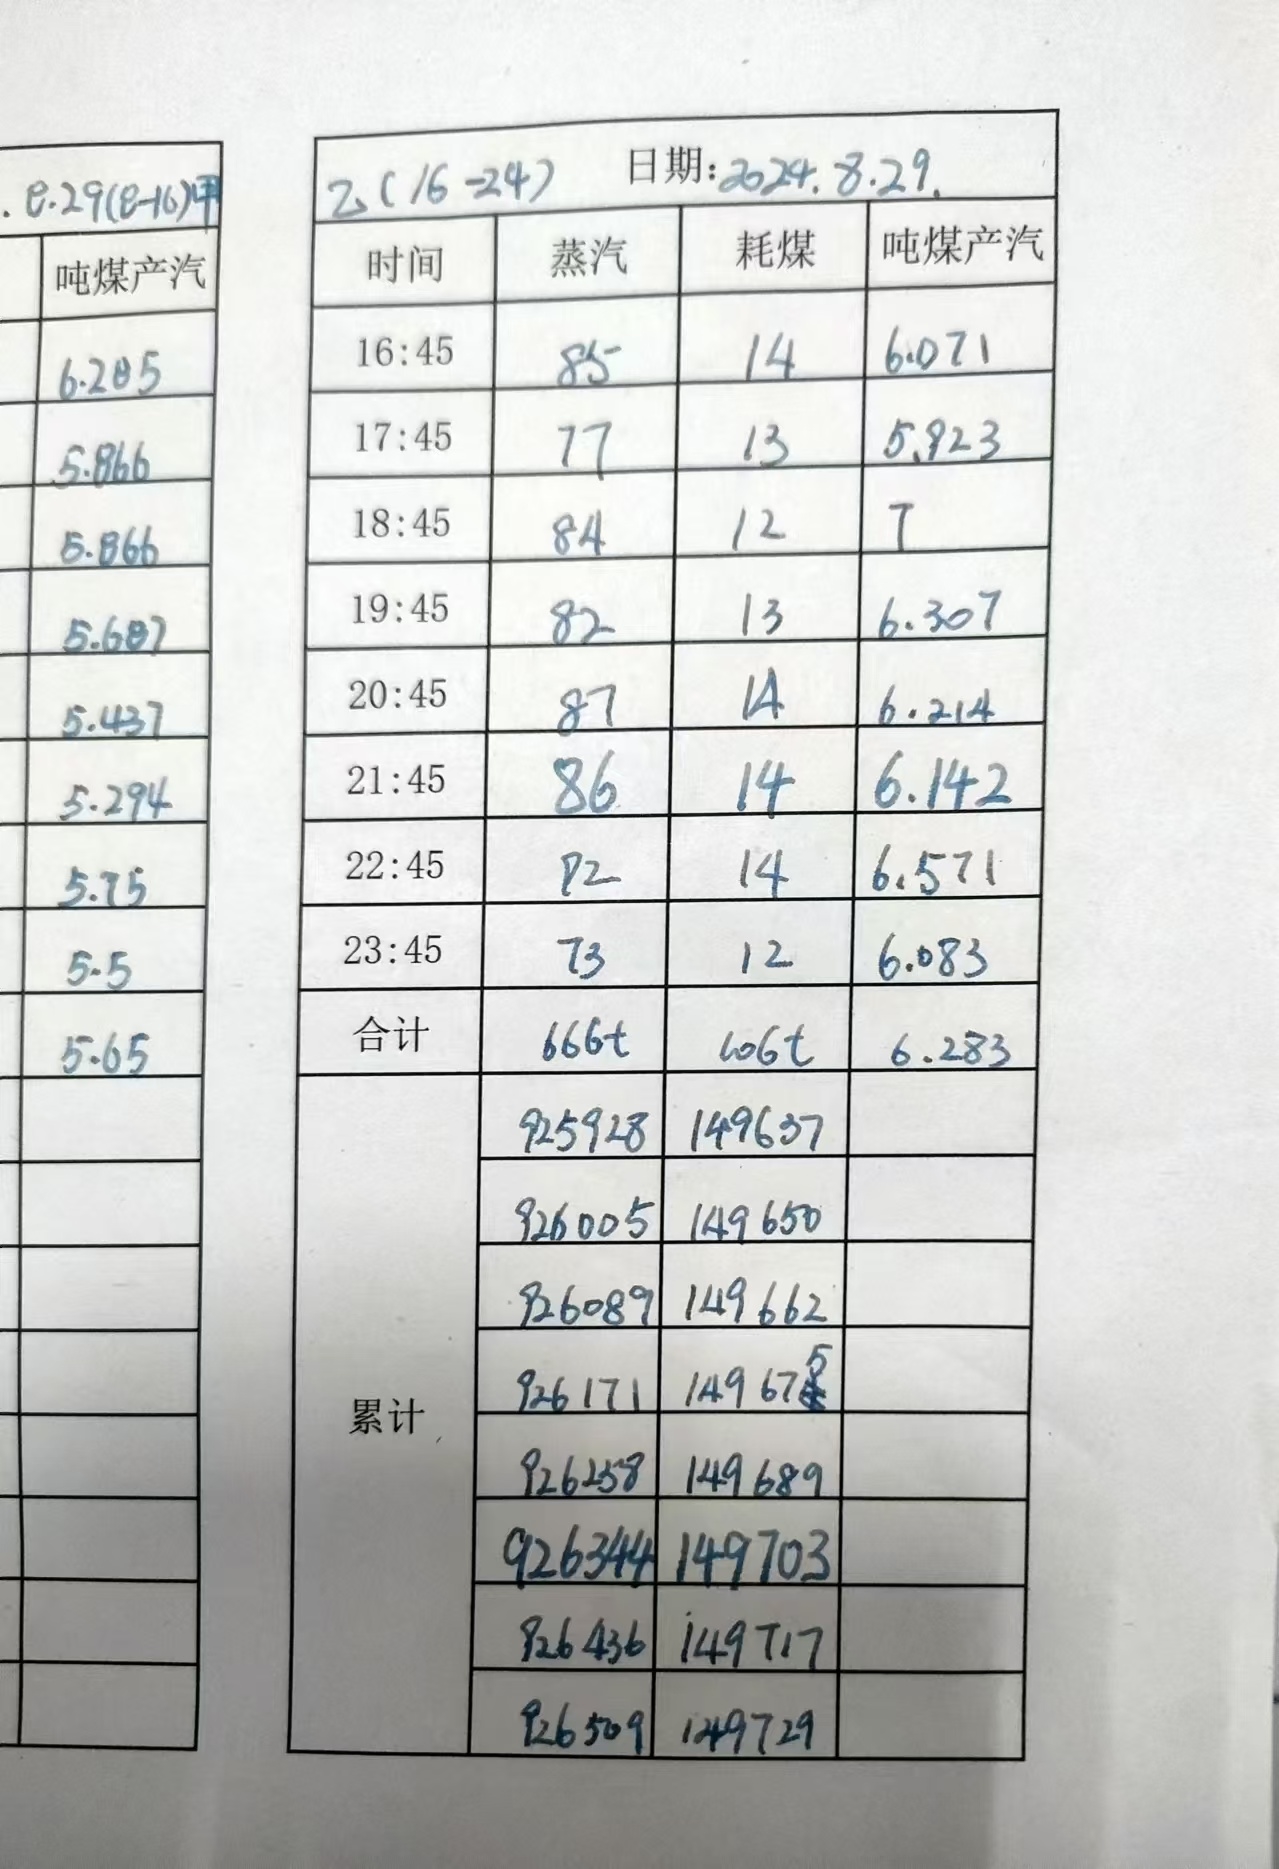 .8.29(8-16)甲
吨煤产汽
6.285
5.866
5.866
5.687
5.437
5.294
5.75
5.5
5.65
乙(16-24) 日期:2024.8.29.
时间 蒸汽 耗煤 吨煤产汽
16:45 85 14 6.071
17:45 77 13 5.923
18:45 84 12 7
19:45 82 13 6.307
20:45 87 14 6.214
21:45 86 14 6.142
22:45 92 14 6.571
23:45 73 12 6.083
合计 666t 106t 6.283
累计
925928 149637
926005 149650
926089 149662
926171 149675
926258 149689
926344 149703
926436 149717
926509 149729